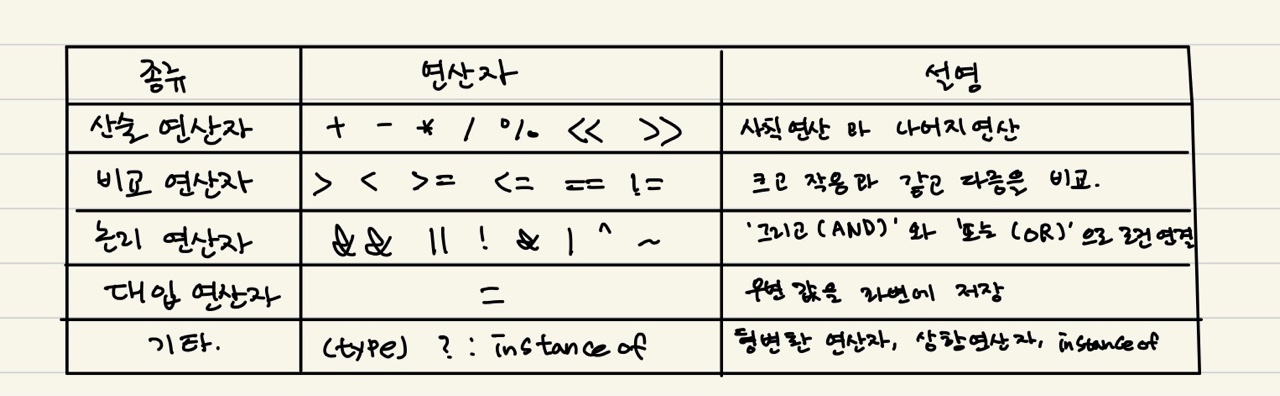 종류 연산자 설명
산술 연산자 + - * / % << >> 사칙연산 과 나머지연산
비교 연산자 > < >= <= == != 크고 작음과 같고 다름을 비교.
논리 연산자 && || ! & | ^ ~ '그리고(AND)'와 '또는 (OR)'으로 조건 연결
대입 연산자 = 우변 값을 좌변에 저장
기타. (type) ? : instanceof 형변환 연산자, 삼항연산자, instanceof